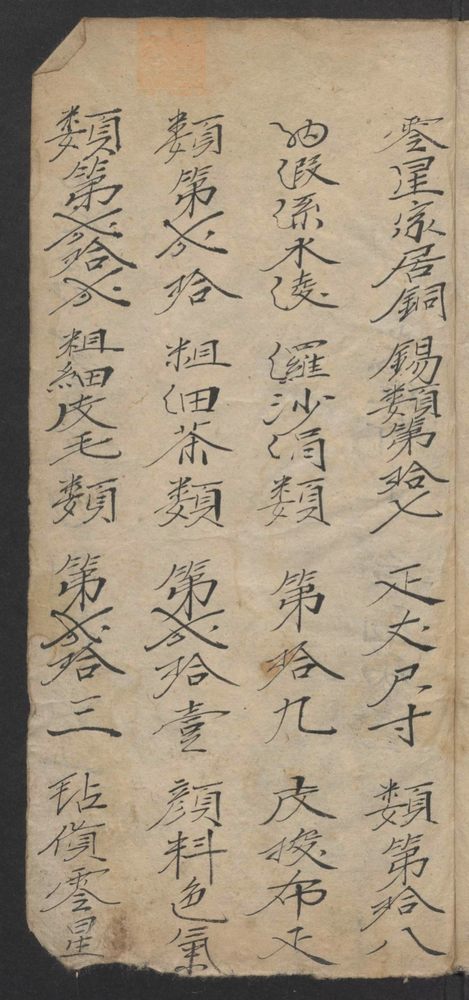 零星家居銅 錫類第拾七 疋丈尺寸 類第拾八
紬假紗水綾 羅沙绢類 第拾九 皮梭布疋
類第弍拾 粗细茶類 第弍拾壹 顏料色氣
類第弍拾弍 粗細皮毛類 第弍拾三 毡價零星